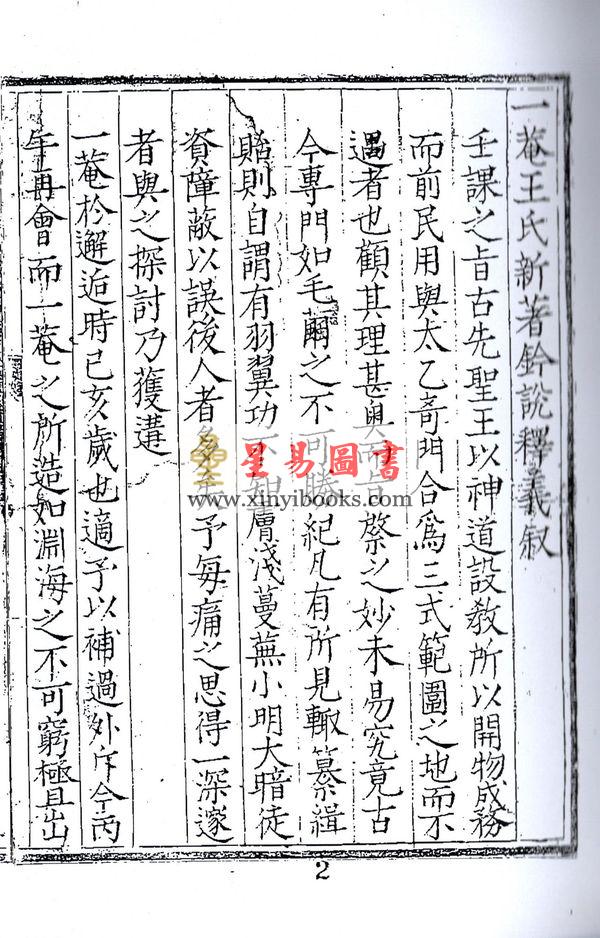 一菴王氏新著鈐說釋義叙
壬課之旨古先聖王以神道設教所以開物成務
而前民用與太乙奇門合為三式範圍之地而不
過者也顧其理甚奧 啓之妙未易究竟古
今專門如毛繭之不可勝紀凡有所見輙纂緝
貽則自謂有羽翼功不知膚浅蔓蕪小明大暗徒
資障蔽以誤後人者多矣予每痛之思得一深邃
者與之探討乃獲遘
一菴於邂逅時己亥歲也適予以補過外斥今丙
午再會而一菴之所造如淵海之不可窮極且出
星易圖書
www.xinyibooks.com
2